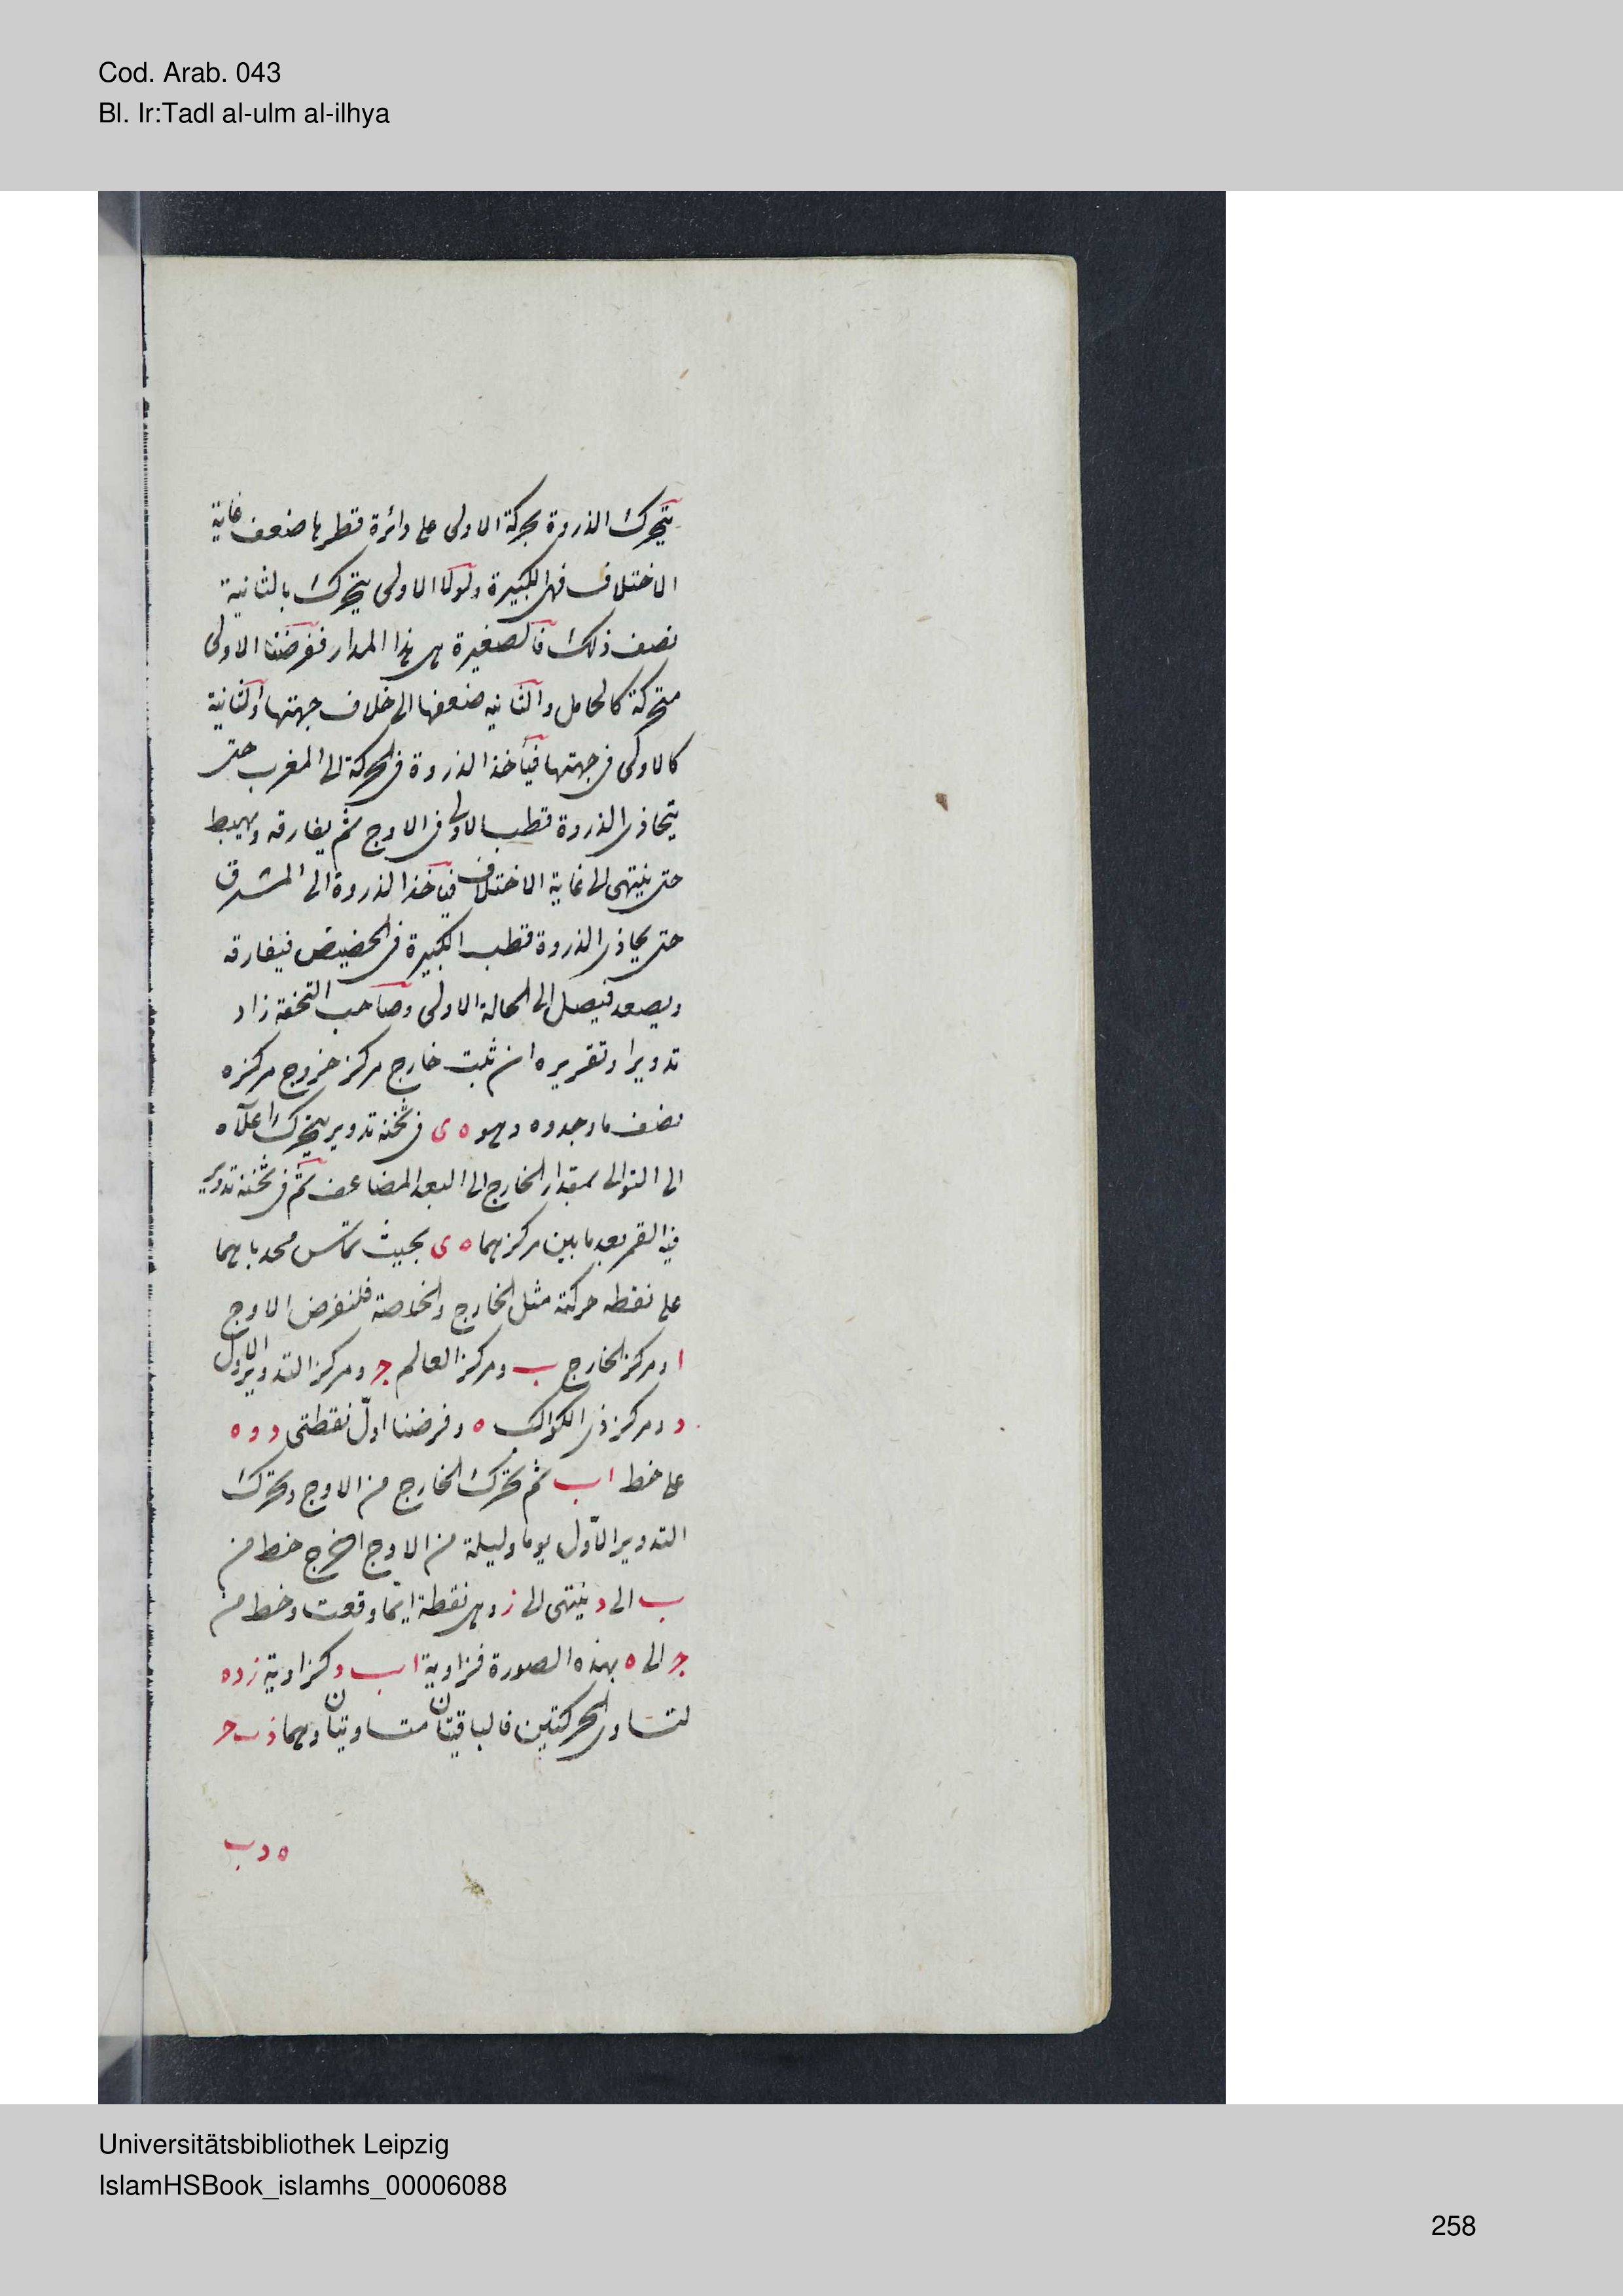 Cod. Arab. 043
Bl. Ir:Tadl al-ulm al-ilhya
يتحرك الذروة بحركة الاولى على دائرة قطرها ضعف غاية
الاختلاف فهى الكبيرة ولولا الاولى يتحرك بالثانية
نصف ذلك فالصغيرة هى هذا المدار ففرضنا الاولى
متحركة كالحامل والثانيه ضعفها الى خلاف جهتها والثانية
كالاولى فى جهتها فيأخذ الذروة فى الحركة الى المغرب حتى
يتحاذى الذروة قطب الاولى فى الاوج ثم يفارقه ويهبط
حتى ينتهى الى غاية الاختلاف فيأخذ الذروة الى المشرق
حتى يحاذى الذروة قطب الكبيرة فى الحضيض فيفارقه
ويصعد فيصل الى الحالة الاولى وصاحب التحفة زاد
تدويرا وتقريره ان ثبت خارج مركز خروج مركزه
نصف ما وجدوه وهو ه ى فى ثخنه تدوير يتحرك اعلاه
الى التوالى بمقدار الخارج الى البعد المضاعف ثم فى ثخنه تدوير
فيه القمر بعد ما بين مركزيهما ه ى بحيث تماس محدباهما
على نقطه حركته مثل الخارج والخلاصة فلنفرض الاوج
ا ومركز الخارج ب ومركز العالم ج ومركز التدوير الاول
د ومركز ذى الكواكب ه وفرضنا اول نقطتى د و ه
على خط ا ب ثم تحرك الخارج من الاوج وتحرك
التدوير الاول يوما وليلة من الاوج اخرج خط من
ب الى د ينتهى الى ز وهى نقطة اينما وقعت وخط من
ج الى ه بهذه الصورة فزاوية ا ب د كزاوية ز د ه
لتساوى الحركتين فالباقيتان متساويتان وهما د ب ج
ه د ب
Universitätsbibliothek Leipzig
IslamHSBook_islamhs_00006088
258